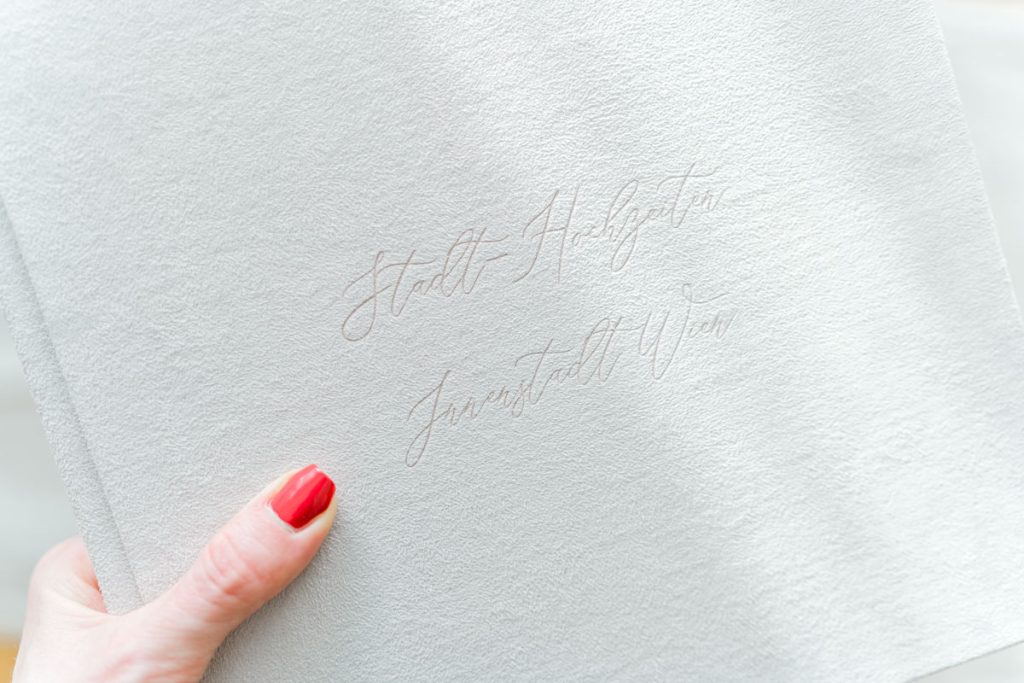 Stadt-Hochzeiten
Innenstadt Wien